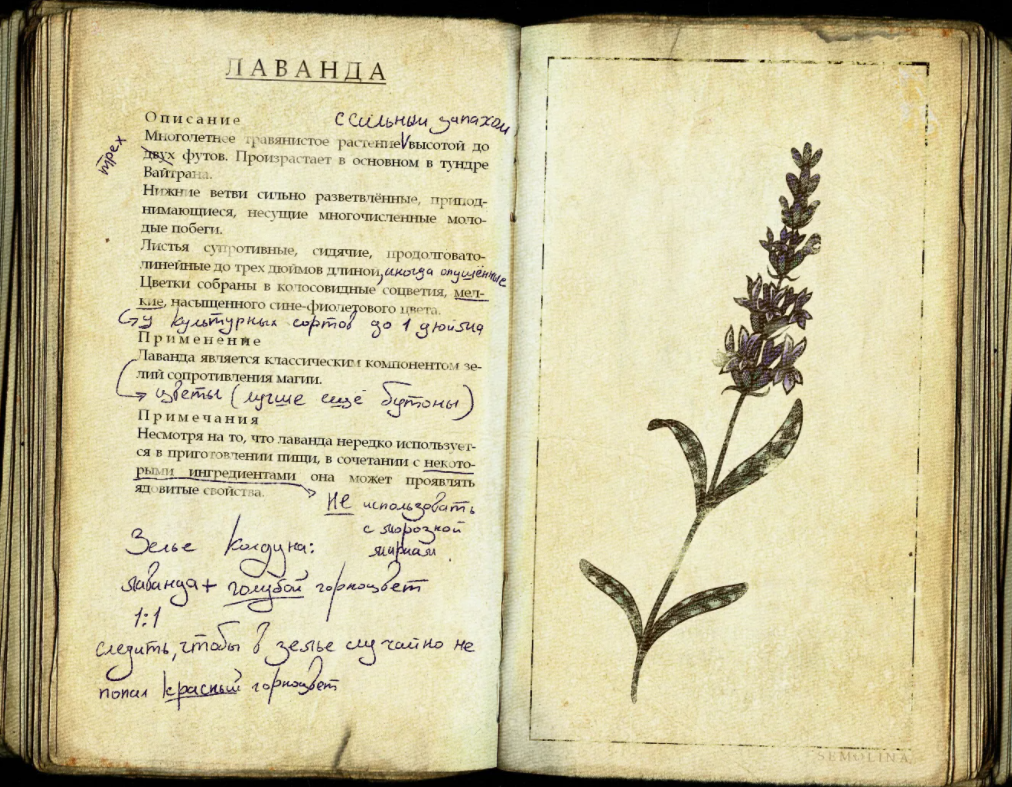 ЛАВАНДА
Описание
с сильным запахом
Многолетнее травянистое растение высотой до
трех
двух футов. Произрастает в основном в тундре
Вайтрана.
Нижние ветви сильно разветвлённые, припод-
нимающиеся, несущие многочисленные моло-
дые побеги.
Листья супротивные, сидячие, продолговато-
линейные до трех дюймов длиной, иногда опушённые
Цветки собраны в колосовидные соцветия, мел-
кие, насыщенного сине-фиолетового цвета.
у культурных сортов до 1 дюйма
Применение
Лаванда является классическим компонентом зе-
лий сопротивления магии.
цветы (лучше ещё бутоны)
Примечания
Несмотря на то, что лаванда нередко использует-
ся в приготовлении пищи, в сочетании с некото-
рыми ингредиентами она может проявлять
ядовитые свойства.
Не использовать
с морозной
мириам.
Зелье Колдуна:
лаванда + голубой горноцвет
1:1
следить, чтобы в зелье случайно не
попал красный горноцвет
SEMOLINA